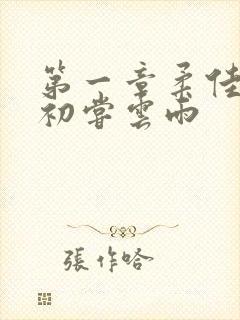 第一章柔佳
初嘗雲雨
張作哈